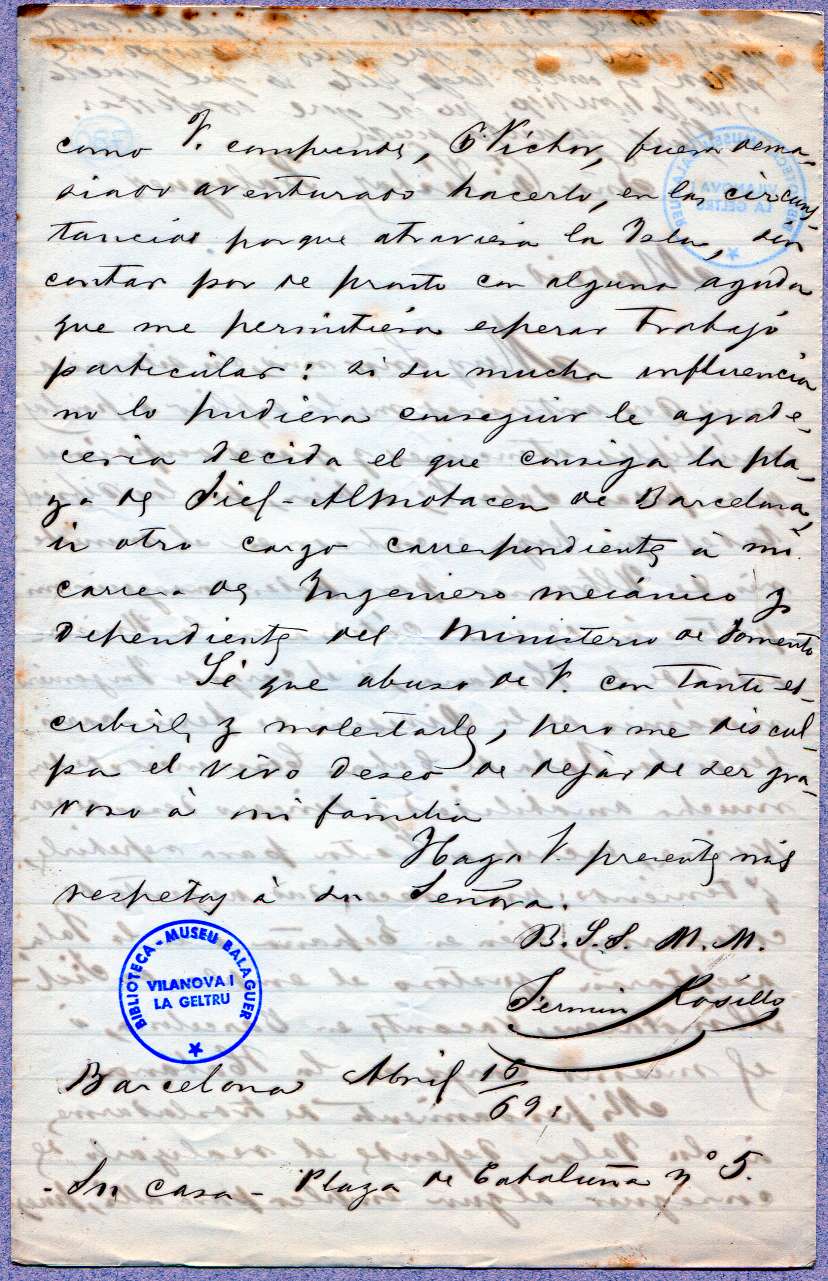 como V. comprende, Dn Victor, fuera dema-
siado aventurado hacerlo, en las circuns-
tancias porque atraviesa la Isla, sin
contar por de pronto con alguna ayuda
que me permitiera esperar trabajo
particular: si su mucha influencia
no lo pudiera conseguir le agrade-
ceria decida el que consiga la pla-
za de Fiel-Almotacen de Barcelona,
ú otro cargo correspondiente à mi
carrera de Ingeniero mecánico y
dependiente del Ministerio de Fomento
Sé que abuso de V. con tanto es-
cribirle y molestarle, pero me discul-
pa el vivo deseo de dejar de ser gra-
voso à mi familia
Haga V. presente mis
respetos à su Señora.
B. S. S. M. M.
Fermin Rosillo
BIBLIOTECA - MUSEU BALAGUER
VILANOVA I
LA GELTRU
Barcelona Abril 16/69.
- Su casa - Plaza de Cataluña nº 5.